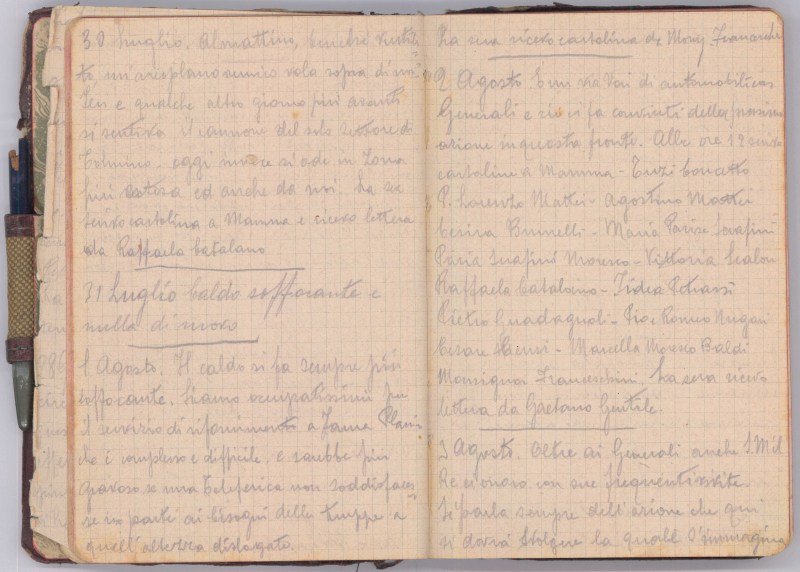 30 Luglio. Al mattino, benché ventila
to, un'areoplano nemico vola sopra di noi.
Ieri e qualche altro giorno più avanti
si sentiva il cannone del solo settore di
Tolmino. oggi invece si ode in Zona
più estesa ed anche da noi. La se
ra cartolina a Mamma e ricevo lettera
da Raffaela Catalano
31 Luglio Caldo soffocante e
nulla di nuovo
1 Agosto. Il caldo si fa sempre più
soffocante. Siamo occupatissimi per
il servizio di rifornimento a Zama Planin
che è complesso e difficile, e sarebbe più
gravoso se una Teleferica non soddisfaces
se in parte ai bisogni delle truppe a
quell'altezza dislogate.
La sera ricevo cartolina da Mons.
2 Agosto È un via vai di automobili con
Generali e ciò ci fa convinti della prossima
azione in questa fronte. Alle ore 12 invio
cartoline a Mamma - Tuzi Concetto
P. Lorenzo Mattei - Agostino Mattei
Cesira Brunelli - Maria Parise Serafini
Paris Serafini Moresco - Vittoria Scalon
Raffaela Catalano - Iidea Petrassi
Pietro Guadagnoli - Pio e Romeo
Cesare - Marcella Moresco Baldi
Monsignor Franceschini. La sera ricevo
lettera da Gaetano Gentile.
3 Agosto. Oltre ai Generali anche S. M. il
Re ci onora con sue frequenti visite.
Si parla sempre dell'azione che qui
si dovrà svolgere la quale s'immagina